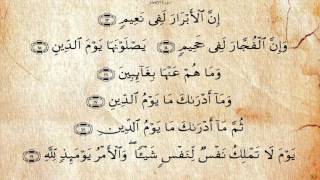 إِنَّ ٱلْأَبْرَارَ لَفِى نَعِيمٍ ۝١٣
وَإِنَّ ٱلْفُجَّارَ لَفِى جَحِيمٍ ۝١٤ يَصْلَوْنَهَا يَوْمَ ٱلدِّينِ ۝١٥
وَمَا هُمْ عَنْهَا بِغَآئِبِينَ ۝١٦
وَمَآ أَدْرَىٰكَ مَا يَوْمُ ٱلدِّينِ ۝١٧
ثُمَّ مَآ أَدْرَىٰكَ مَا يَوْمُ ٱلدِّينِ ۝١٨
يَوْمَ لَا تَمْلِكُ نَفْسٌ لِّنَفْسٍ شَيْـًٔا ۖ وَٱلْأَمْرُ يَوْمَئِذٍ لِّلَّهِ ۝١٩